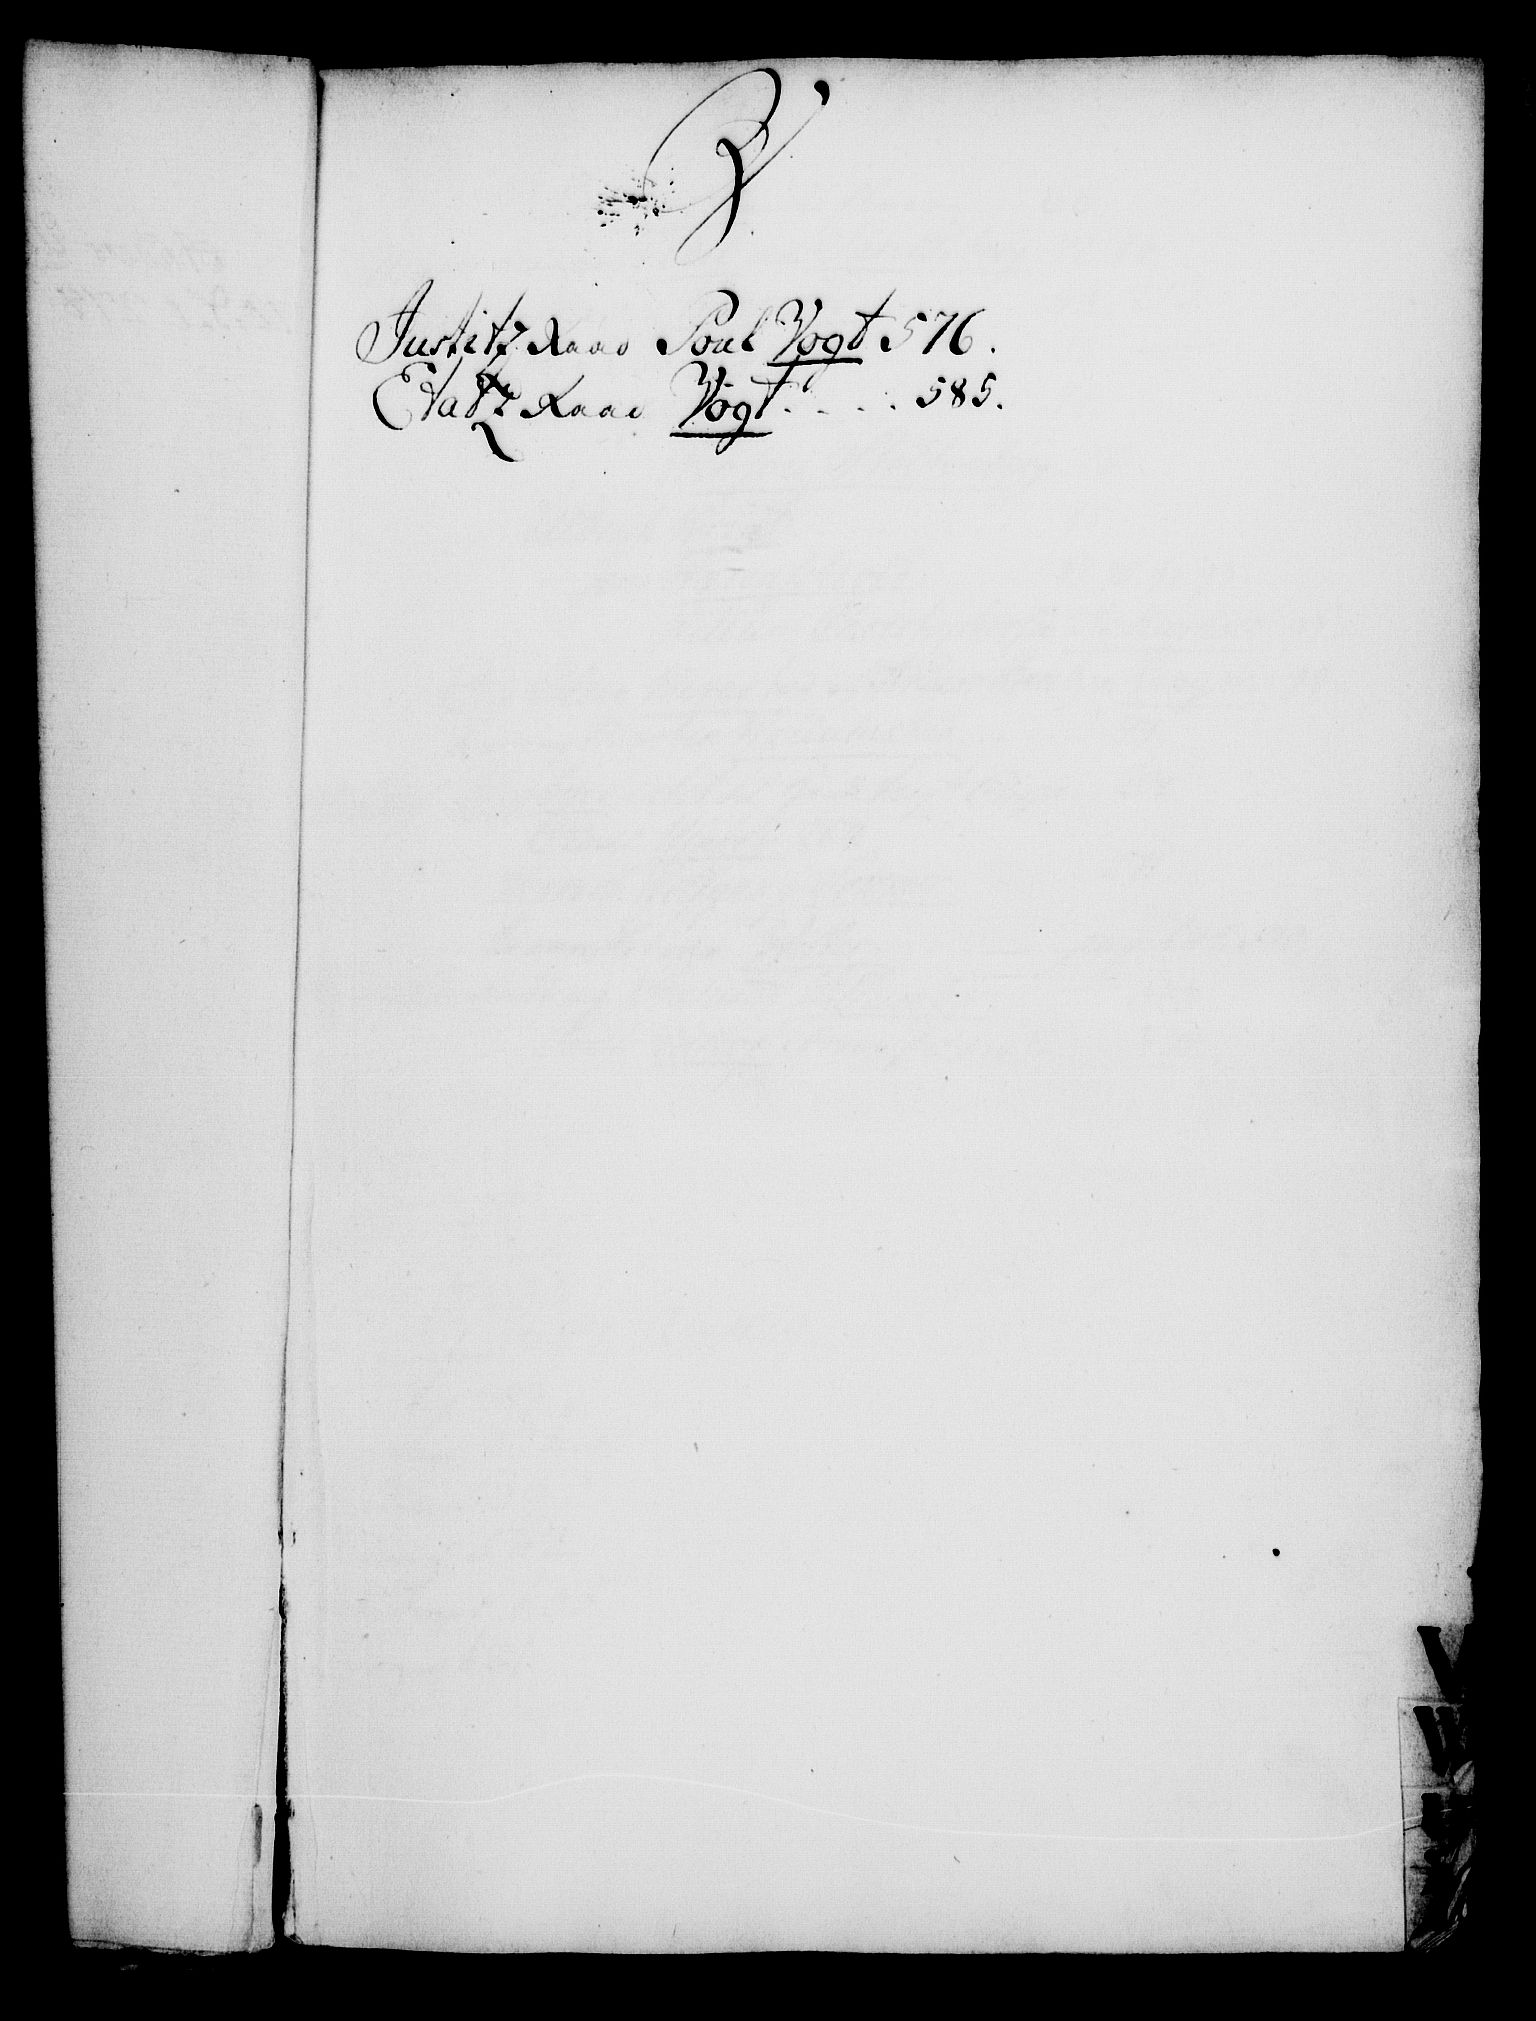 V
Justitz Raad Poul Vogt 576.
Etatz Raad Vogt . . . . 585.
V
W